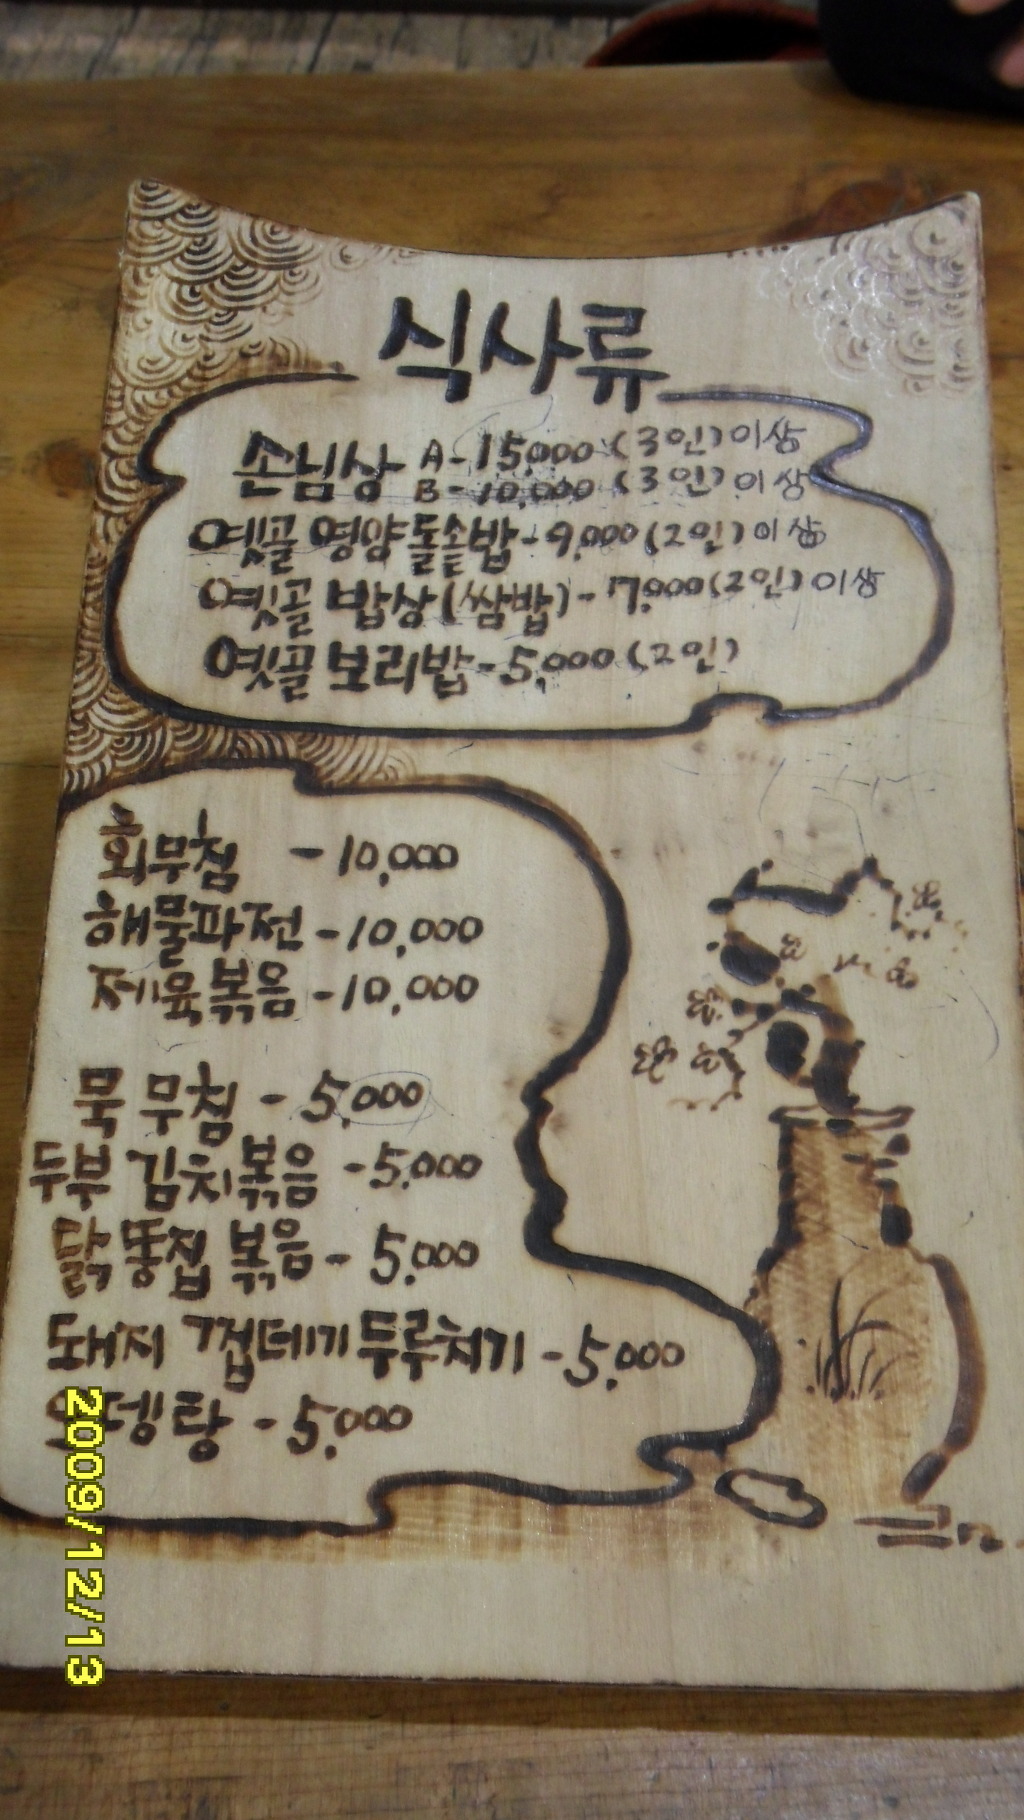 식사류
손님상 A-15,000 (3인) 이상
B-10,000 (3인) 이상
옛골 영양돌솥밥-9,000 (2인) 이상
옛골 밥상(쌈밥)-7,000 (2인) 이상
옛골 보리밥-5,000 (2인)
회무침 -10,000
해물파전-10,000
제육볶음-10,000
묵 무침-5,000
두부 김치볶음-5,000
닭똥집 볶음-5,000
돼지 껍데기 두루치기-5,000
오뎅탕-5,000
2009/12/13